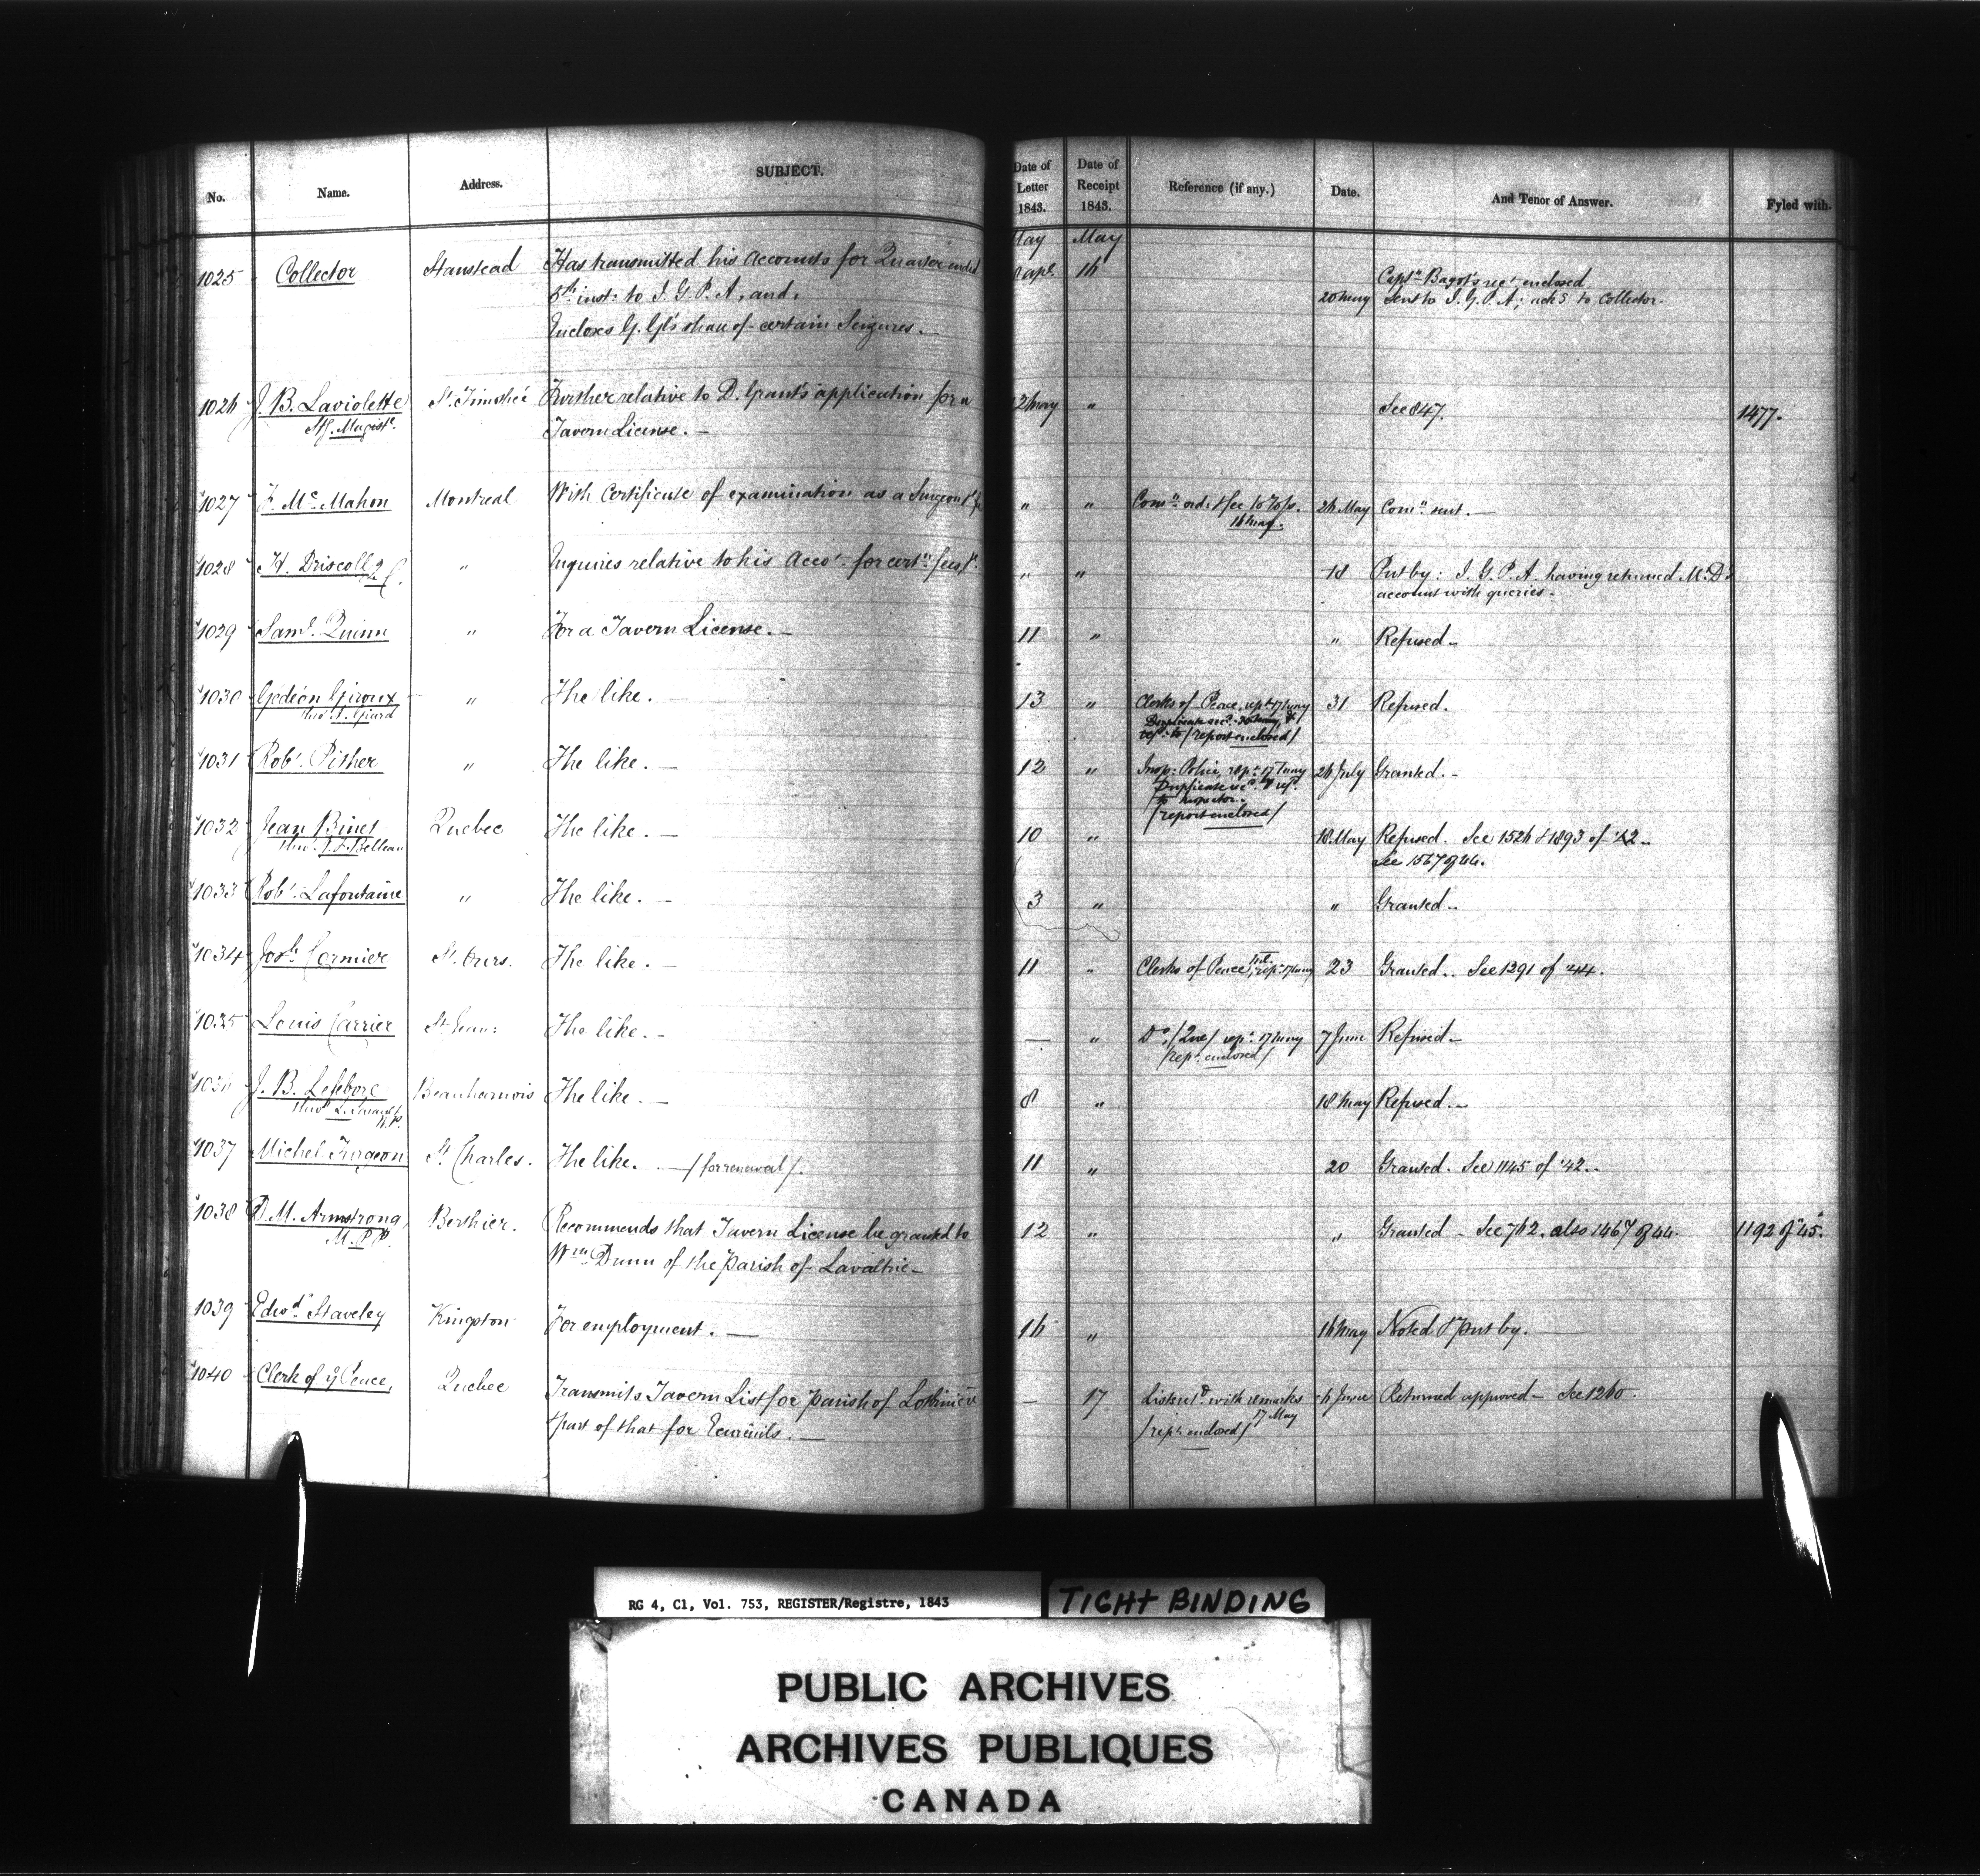 No. Name. Address. SUBJECT. Date of Letter 1843. Date of Receipt 1843. Reference (if any.) Date. And Tenor of Answer. Fyled with.
May May
1025 Collector Stanstead Has transmitted his Accounts for Quarter ended apl. 16
8th inst: to I. G. P. A, and, 20 May Captn Bagot's rect enclosed
Sent to I. G. P. A; ack'd to Collector.
Encloses G. Gl's share of certain Seizures.
1026 J. B. Laviolette St. Timothée Further relative to D. Grant's application for a 12 May " See 847. 1477.
Sty. Magistr. Tavern License. —
1027 F. Mc Mahon Montreal With Certificate of examination as a Surgeon " " Comn ord: 26 May Comn sent. —
16 May.
1028 H. Driscoll Q C. " Inquires relative to his Acct for certn fees " " 18 Put by: I. G. P. A. having returned Mr D's
account with queries.
1029 Saml. Quinn " For a Tavern License. — 11 " " Refused —
1030 Gédéon Giroux " The like. — 13 " Clerks of Peace, rept 17 May 31 Refused.
thro' Girard /report enclosed/
1031 Robt. Pither " The like. — 12 " Insp: Police, rept 17 May 26 July Granted. —
Duplicate
to Inspector.
/report enclosed/
1032 Jean Binet Quebec The like. — 10 " 18 May Refused. See 1526 & 1893 of '42..
thro' Belleau See 1567 of 44.
1033 Robt. Lafontaine " The like. — 3 " " Granted..
1034 Josh. Cormier St. Ours. The like. — 11 " Clerks of Peace, rept 17 May 23 Granted.. See 1291 of '44.
1035 Louis Carrier St Jean: The like. — — " Do, /Que/ rept 17 May 7 June Refused. —
/rept enclosed/
1036 J. B. Lefebvre Beauharnois The like. — 8 " 18 May Refused. —
N.P.
1037 Michel Turgeon St. Charles. The like. — /for renewal/. 11 " 20 Granted. See 1145 of '42..
1038 D. M. Armstrong Berthier. Recommends that Tavern License be granted to 12 " " Granted — See 762. also 1467 of 44. 1192 of '45.
M. P. P. Wm Dunn of the Parish of Lavaltrie —
1039 Edwd Staveley Kingston For employment. — 16 " 16 May Noted & put by.
1040 Clerk of ye Peace, Quebec Transmits Tavern List for parish of Lotbinière — 17 List with remarks 6 June Returned approved — See 1260.
& part of that for Ecureuils. — 17 May
/rept enclosed/
RG 4, C1, Vol. 753, REGISTER/Registre, 1843
TIGHT BINDING
PUBLIC ARCHIVES
ARCHIVES PUBLIQUES
CANADA